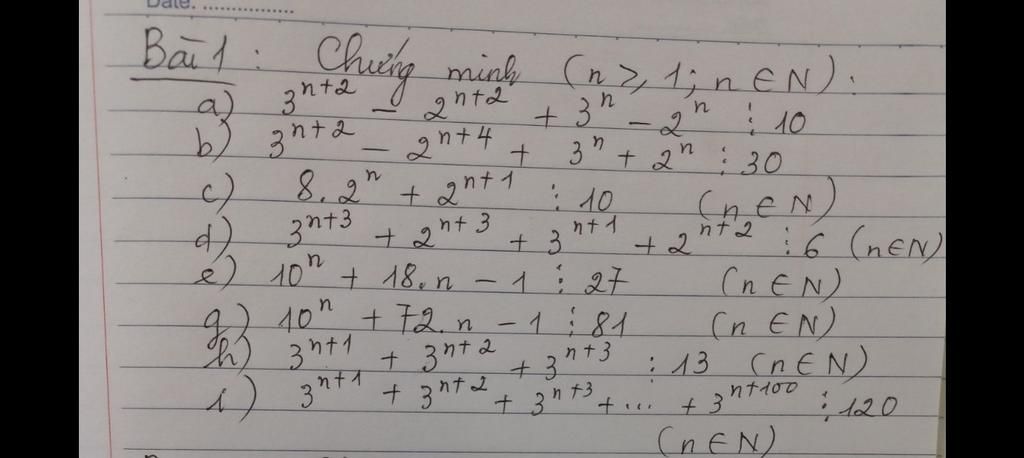 Date: ................
Bài 1 : Chứng minh (n ≥ 1; n ∈ N) :
a) 3^{n+2} - 2^{n+2} + 3^n - 2^n ⋮ 10
b) 3^{n+2} - 2^{n+4} + 3^n + 2^n ⋮ 30
c) 8.2^n + 2^{n+1} ⋮ 10 (n ∈ N)
d) 3^{n+3} + 2^{n+3} + 3^{n+1} + 2^{n+2} ⋮ 6 (n ∈ N)
e) 10^n + 18.n - 1 ⋮ 27 (n ∈ N)
g) 10^n + 72.n - 1 ⋮ 81 (n ∈ N)
h) 3^{n+1} + 3^{n+2} + 3^{n+3} ⋮ 13 (n ∈ N)
i) 3^{n+1} + 3^{n+2} + 3^{n+3} + ... + 3^{n+100} ⋮ 120
(n ∈ N)